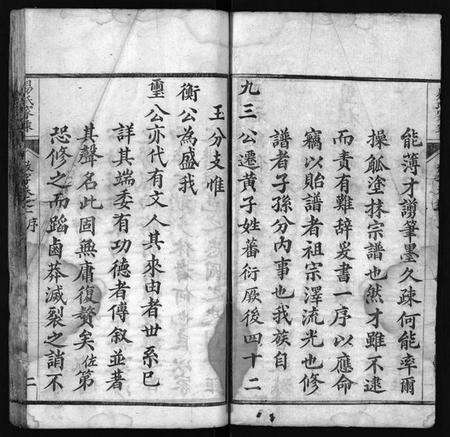 能薄才謭筆墨久疎何能率爾
操觚塗抹宗譜也然才雖不逮
而責有難辞爰書一序以應命
竊以貽譜者祖宗澤流光也修
譜者子孫分內事也我族自
九三公遷黄子姓蕃衍厥後四十二
玉分支惟
衡公為盛我
璽公亦代有文人其来由者世系已
詳其端委有功德者傳叙並著
其聲名此固無庸復贅矣佐第
恐修之而蹈鹵莽滅裂之誚不
序
二